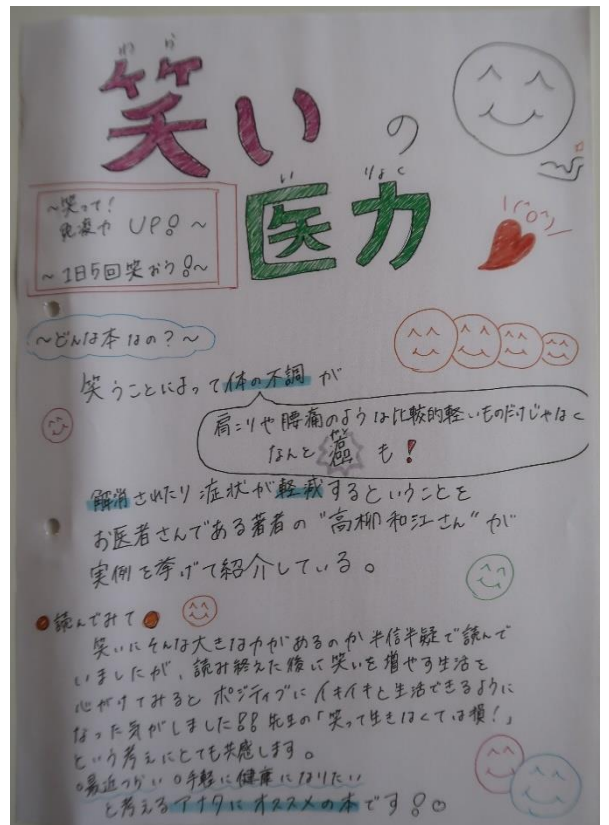 わら
笑いの
いりょく
医力
～笑って!
免疫力 UP!～
～1日5回笑おう!～
～どんな本なの?～
笑うことによって体の不調が
肩こりや腰痛のような比較的軽いものだけじゃなく
なんと癌も!
がん
解消されたり症状が軽減するということを
お医者さんである著者の"高柳和江さん"が
実例を挙げて紹介している。
読んでみて
笑いにそんな大きな力があるのか半信半疑で読んで
いましたが、読み終えた後に笑いを増やす生活を
心がけてみるとポジティブにイキイキと生活できるように
なった気がしました!!先生の「笑って生きなくては損!」
という考えにとても共感します。
○最近つかい○手軽に健康になりたい
と考えるアナタにオススメの本です!